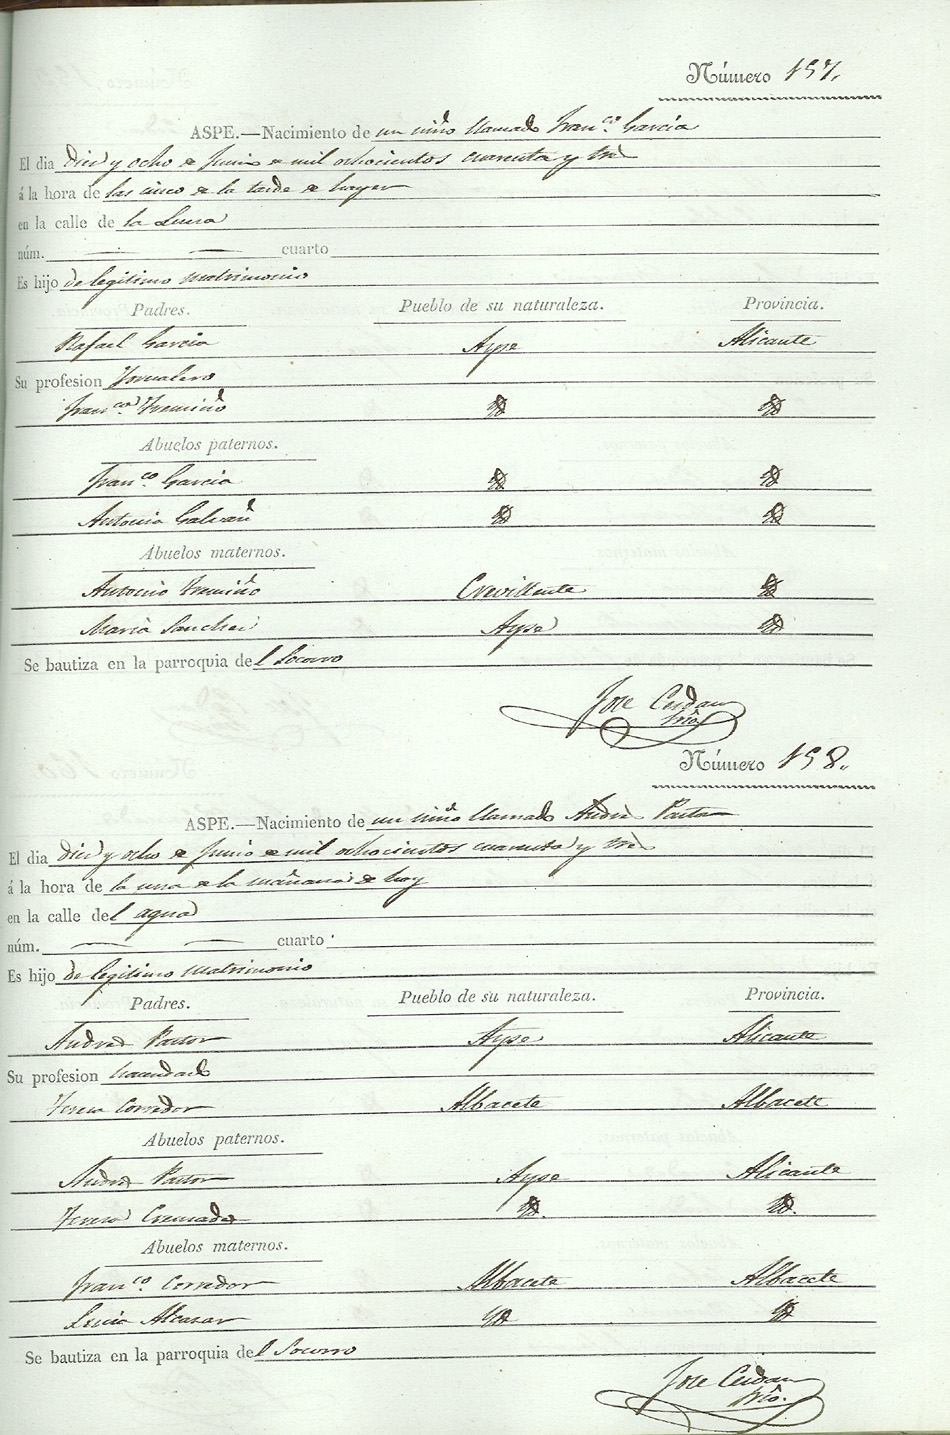 Número 157.
ASPE.—Nacimiento de un niño llamado Fran.co Garcia
El dia diez y ocho de Junio de mil ochocientos cuarenta y tres
á la hora de las cinco de la tarde de hayer
en la calle de la Luna
núm. — — cuarto
Es hijo de legitimo matrimonio
Padres. Pueblo de su naturaleza. Provincia.
Rafael Garcia Aspe Alicante
Su profesion Jornalero
Fran.ca Irmiño Yd Yd
Abuelos paternos.
Fran.co Garcia Yd Yd
Antonia Galvañ Yd Yd
Abuelos maternos.
Antonio Crevillente Yd
Maria Sanchez Aspe Yd
Se bautiza en la parroquia del Socorro
Jose Cerdan
Srio.
Número 158.
ASPE.—Nacimiento de un niño llamado Andres Pastor
El dia diez y ocho de Junio de mil ochocientos cuarenta y tres
á la hora de la una de la mañana de hoy
en la calle del agua
núm. — — cuarto
Es hijo de legitimo matrimonio
Padres. Pueblo de su naturaleza. Provincia.
Andres Pastor Aspe Alicante
Su profesion hacendado
Teresa Corredor Albacete Albacete
Abuelos paternos.
Andres Pastor Aspe Alicante
Teresa Cremades Yd. Yd.
Abuelos maternos.
Fran.co Corredor Albacete Albacete
Lucia Alcazar Yd Yd
Se bautiza en la parroquia del Socorro
Jose Cerdan
Srio.